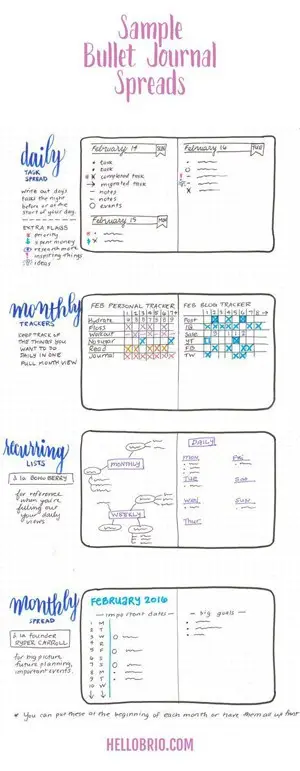 Sample
Bullet Journal
Spreads
daily
TASK
SPREAD
write out days
tasks the night
before or at the
start of your day.
EXTRA FLAGS
priority
spent money
research more
inspiring things
ideas
February 14
SUN
• task
• task
x completed task
→ migrated task
– notes
– notes
○ events
February 15
MON
February 16
TUE
monthly
TRACKERS
KEEP TRACK OF
THE THINGS YOU
WANT TO DO
DAILY IN ONE
FULL MONTH VIEW
FEB PERSONAL TRACKER
1 2 3 4 5 6 7→
Hydrate
Floss
Workout
No sugar
Read
Journal
FEB BLOG TRACKER
1 2 3 4 5 6 7 8 →
Post
IG
Sale
YT
FB
TW
recurring
LISTS
à la BOHO BERRY
for reference
when you're
filling out
your daily
views
MONTHLY
WEEKLY
DAILY
Mon
Tue
Wed
Thur
Fri
Sat
Sun
monthly
SPREAD
à la founder
RYDER CARROLL
for big picture,
future planning,
important events.
FEBRUARY 2016
— important dates —
1 M
2 T
3 W
4 R
5 F
6 S
7 S
8 M
9 T
10 W
— big goals —
* You can put these at the beginning of each month or have them all up front
HELLOBRIO.COM